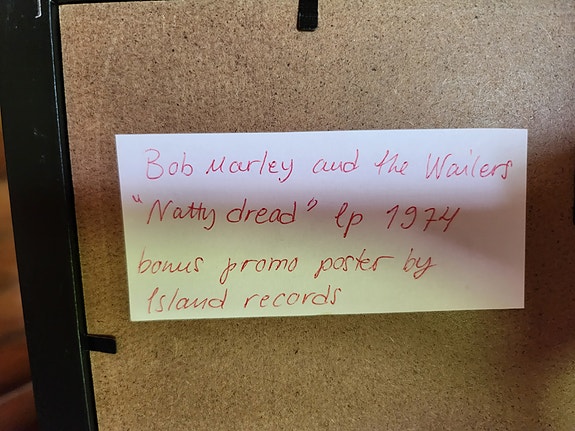 Bob Marley and the Wailers
"Natty dread" lp 1974
bonus promo poster by
Island records